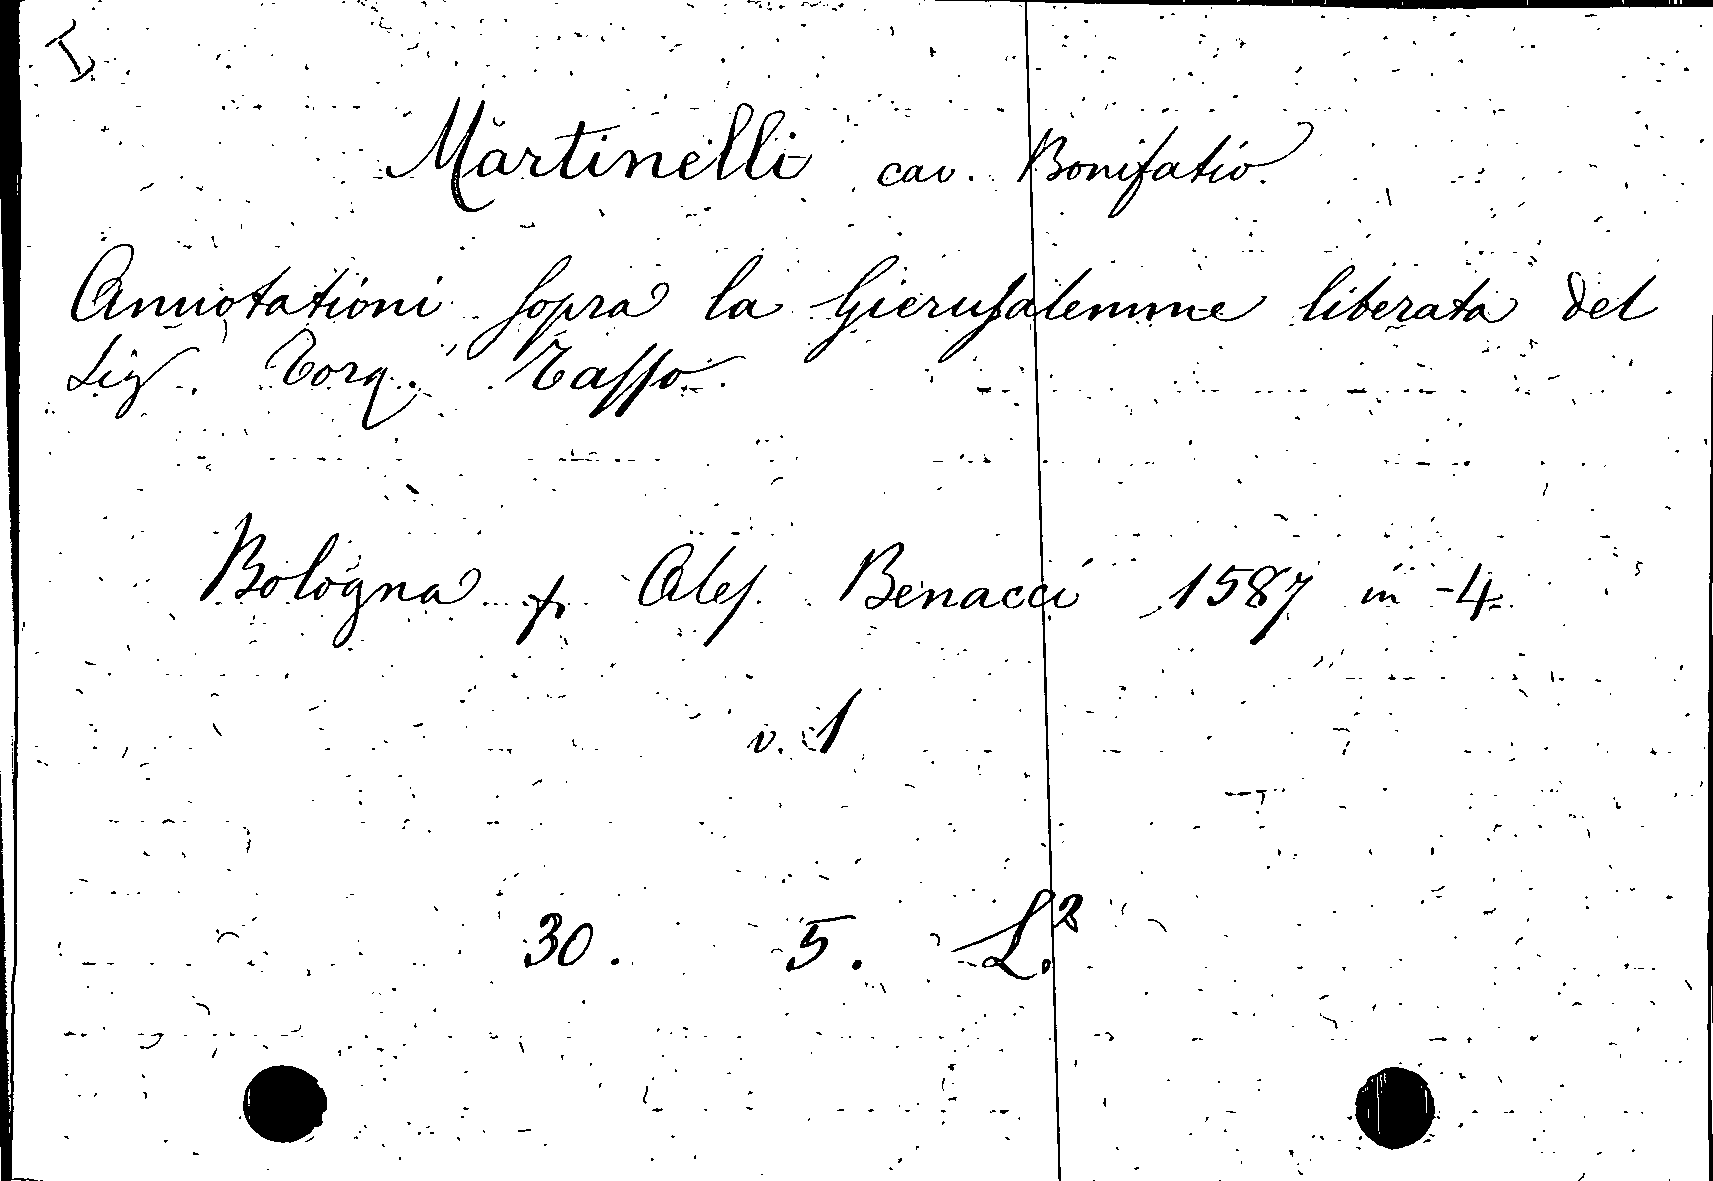 I
Martinelli cav. Bonifatio
Annotationi sopra la Gierusalemme liberata del
Sig. Torq. Tasso.
Bologna p. Ales. Benacci 1587 in-4.
v. 1
30. 5. L.2